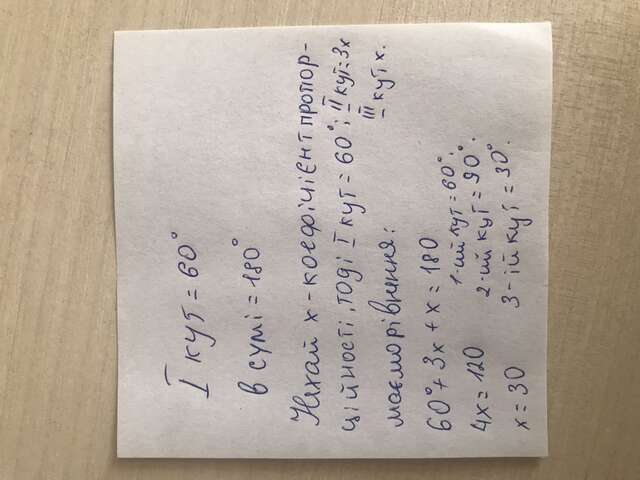 I кут = 60°
в сумі = 180°
Нехай х - коефіцієнт пропор-
ційності, тоді I кут = 60°; II кут = 3х
III кут х.
маємо рівнення:
60° + 3х + х = 180
4х = 120
х = 30
1-ий кут = 60°.
2-ий кут = 90°.
3-ій кут = 30°.